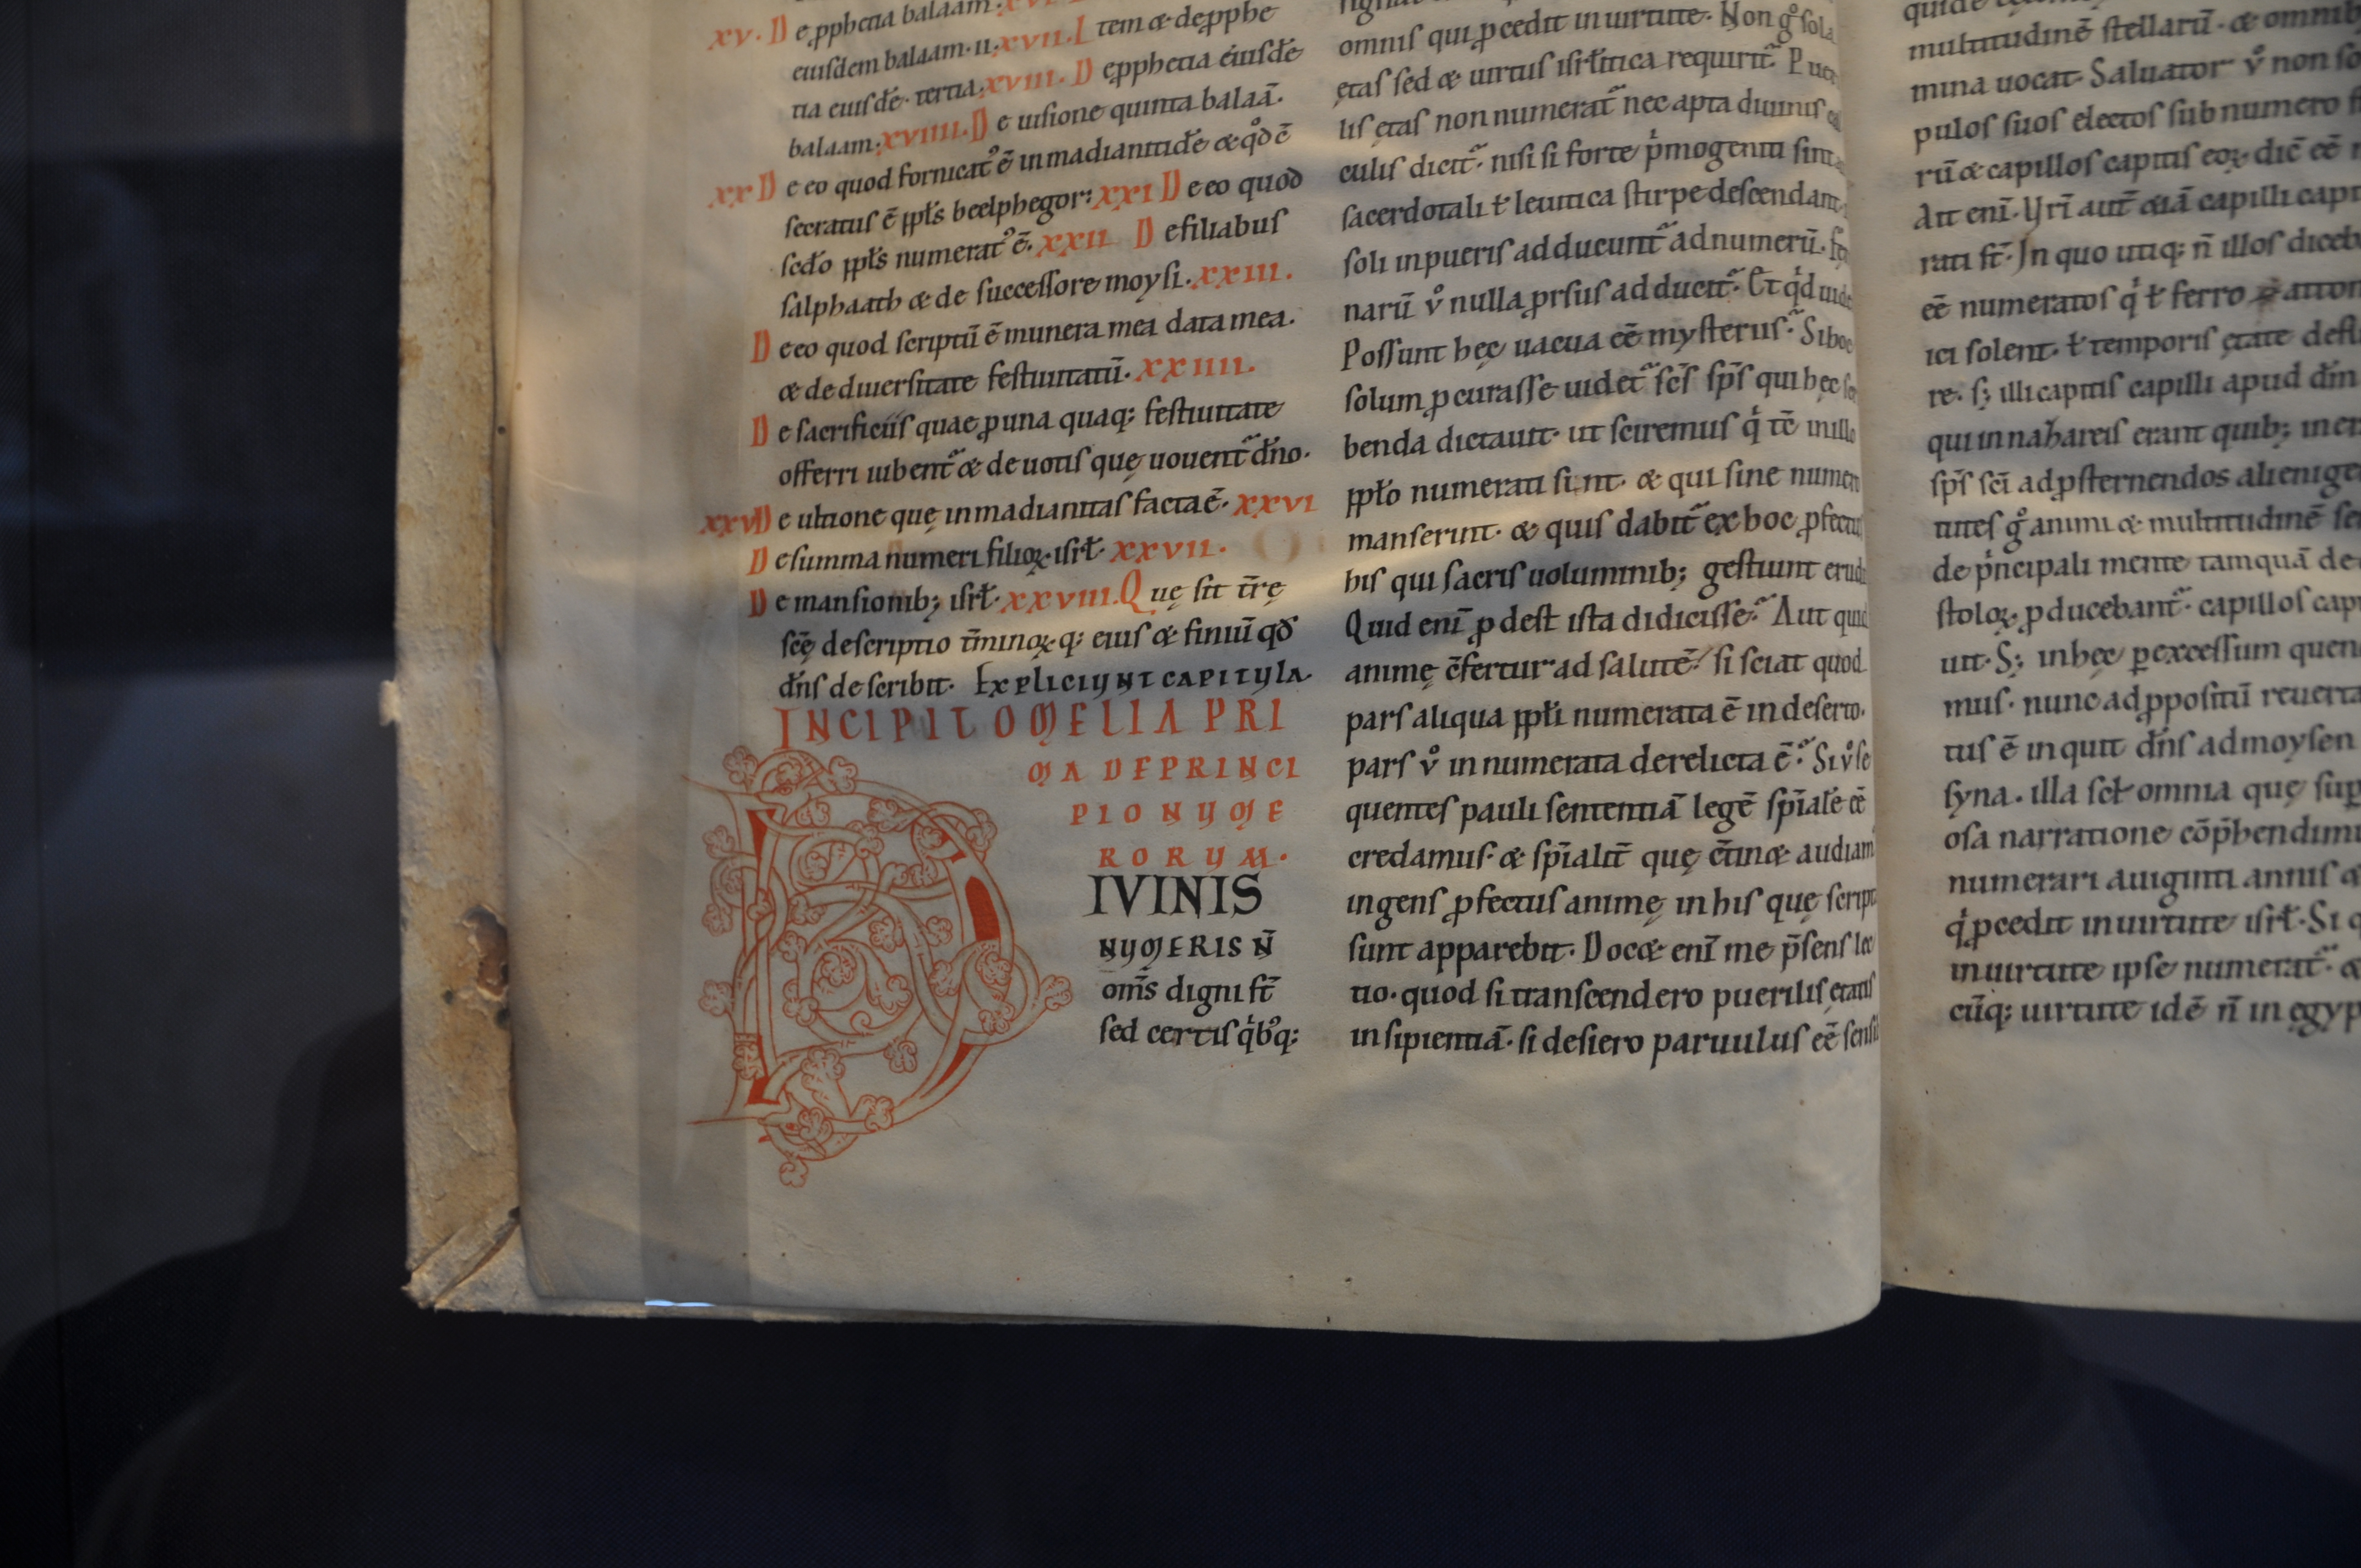 xv. D e pphetia balaam.
eiusdem balaam. ii. xvii. I tem & de pphe
tia eiusdē. tertia. xviii. D e pphetia eiusdē
balaam. xviiii. D e uisione quinta balaā.
xx D e eo quod fornicat᷒ ē in madianitidē & qd̊ ē
secratus ē ppl̄s beelphegor: xxi D e eo quod
sed̄o ppl̄s numerat᷒ ē. xxii D e filiabus
salphaath & de successore moysi. xxiii.
D e eo quod scriptū ē munera mea data mea.
& de diuersitate festiuitatū. xxiiii.
D e sacrificiis quae p una quaq; festiuitate
offerri iubent᷑ & de uotis quę uouent᷑ dn̄o.
xxv D e ultione quę in madianitas facta ē. xxvi
D e summa numeri filioꝝ isrł. xxvii.
D e mansionib; isrł. xxviii. Q uę sit t̄rę
sc̄ę descriptio t̄minoꝝ q; eius & finiū qd̄
dn̄s describit. Expliciunt capitula.
INCIPIT OMELIA PRI
MA DE PRINCI
PIO NUME
RORUM.
DIVINIS
NUMERIS N̄
om̄s digni st̄
sed certis q̇bq;
omnis qui pcedit in uirtute. Non g̊ sola
ętas sed & uirtus isrłitica requirit᷑. Pue
lis ętas non numerat᷑ nec apta diuinis
culis dicit᷑. nisi si forte p̍mogeniti sint
sacerdotali ł leuitica stirpe descendant.
soli in pueris adducunt᷑ ad numerū. Fe
narū v̊ nulla prsus adducit᷑. Et q̇d uide
Possunt hęc uacua eē mysteriis? Si hoc
solum pcurasse uidet᷑ sc̄s sp̄s qui hęc
benda dictauit. ut sciremus q̇ tē in illo
ppło numerati sint. & qui sine numero
manserint. & quis dabit᷑ ex hoc pfectus
his qui sacris uoluminib; gestiunt erud
Quid enī pdest ista didicisse? Aut quid
animę c̄fertur ad salutē? si sciat quod
pars aliqua ppłi numerata ē in deserto.
pars v̊ in numerata derelicta ē? Si v̊ se
quentes pauli sententiā legē sp̄ialē eē
credamus. & sp̄ialit̄ quę c̄tin& audiam
ingens pfectus animę in his quę script
sunt apparebit. Doc& enī me p̄sens lec
tio. quod si transcendero puerilis ętatis
insipientiā. si desiero paruulus eē sensi
multitudinē stellarū. & omnib
mina uocat. Saluator v̊ non so
pulos suos electos sub numero
rū & capillos capitis eoꝝ dic̄ eē
Ait enī. Vr̄i aut̄ &iā capilli capi
rati st̄. In quo utiq; n̄ illos diceb
eē numeratos q̇ ł ferro
ici solent. ł temporis ętate
re. s; illi capitis capilli apud dm̄
qui in nazareis erant quib; iner
sp̄s sc̄i ad psternendos alienige
tutes g̊ animi & multitudinē
de p̍ncipali mente tamquā de
stoloꝝ pducebant᷑. capillos capi
uit. S; in hęc p excessum quen
mus. nunc ad ppositū reuerta
tus ē inquit dn̄s ad moysen
syna. illa scł omnia quę sup
osa narratione cōp̄hendimu
numerari a uiginti annis
q̇ pcedit in uirtute isrł. Si q
in uirtute ipse numerat᷑. &
cūq; uirtute idē n̄ in egyp